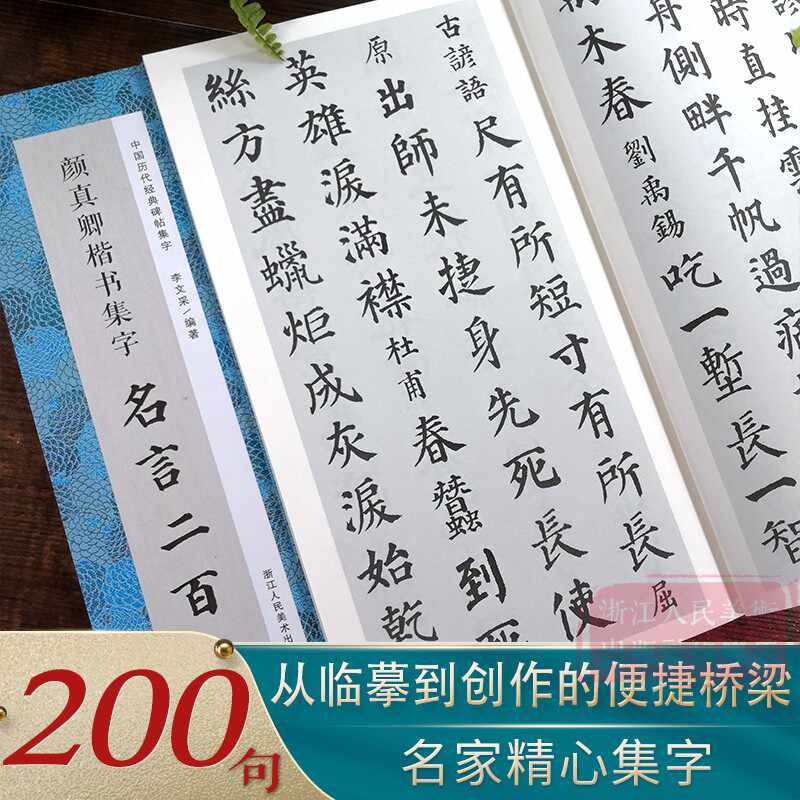 中国历代经典碑帖集字 李文采/编著
颜真卿楷书集字
名言二百
浙江人民美术出
時直挂雲
舟側畔千帆過病
木春 劉禹錫 吃一塹長一智
古諺語 尺有所短寸有所長 屈
原 出師未捷身先死長使
英雄淚滿襟 杜甫 春蠶到死
絲方盡蠟炬成灰淚始乾
浙江人民美術
200句
从临摹到创作的便捷桥梁
名家精心集字